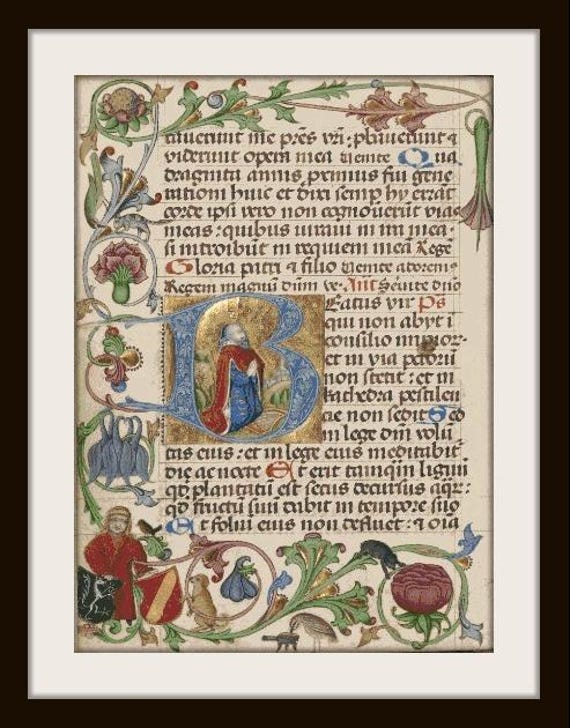 tauerunt me prēs vr̄i: ꝓbauerunt ⁊
viderunt opera mea Venite Qua
draginta annis proximus fui gene
rationi huic et dixi semp hy errāt
corde ipsi vero non cognouerūt vias
meas: quibus iuraui in ira mea
si introibūt in requiem meā Regē
Gloria patri ⁊ filio Venite adoremꝰ
Regem magnū dūm ve. Ant Seruite dūo
Beatus vir Ps
qui non abyt i
consilio impior
et in via pctorū
non stetit: et in
cathedra pestilen
cie non sedit Sed
in lege dn̄i volū
tas eius: et in lege eius meditabit
die ac nocte Et erit tamqm̄ lignū
qd plantatū est secus decursus aqr:
qd fructū suū dabit in tempore suo
Et foliū eius non defluet: ⁊ oīa